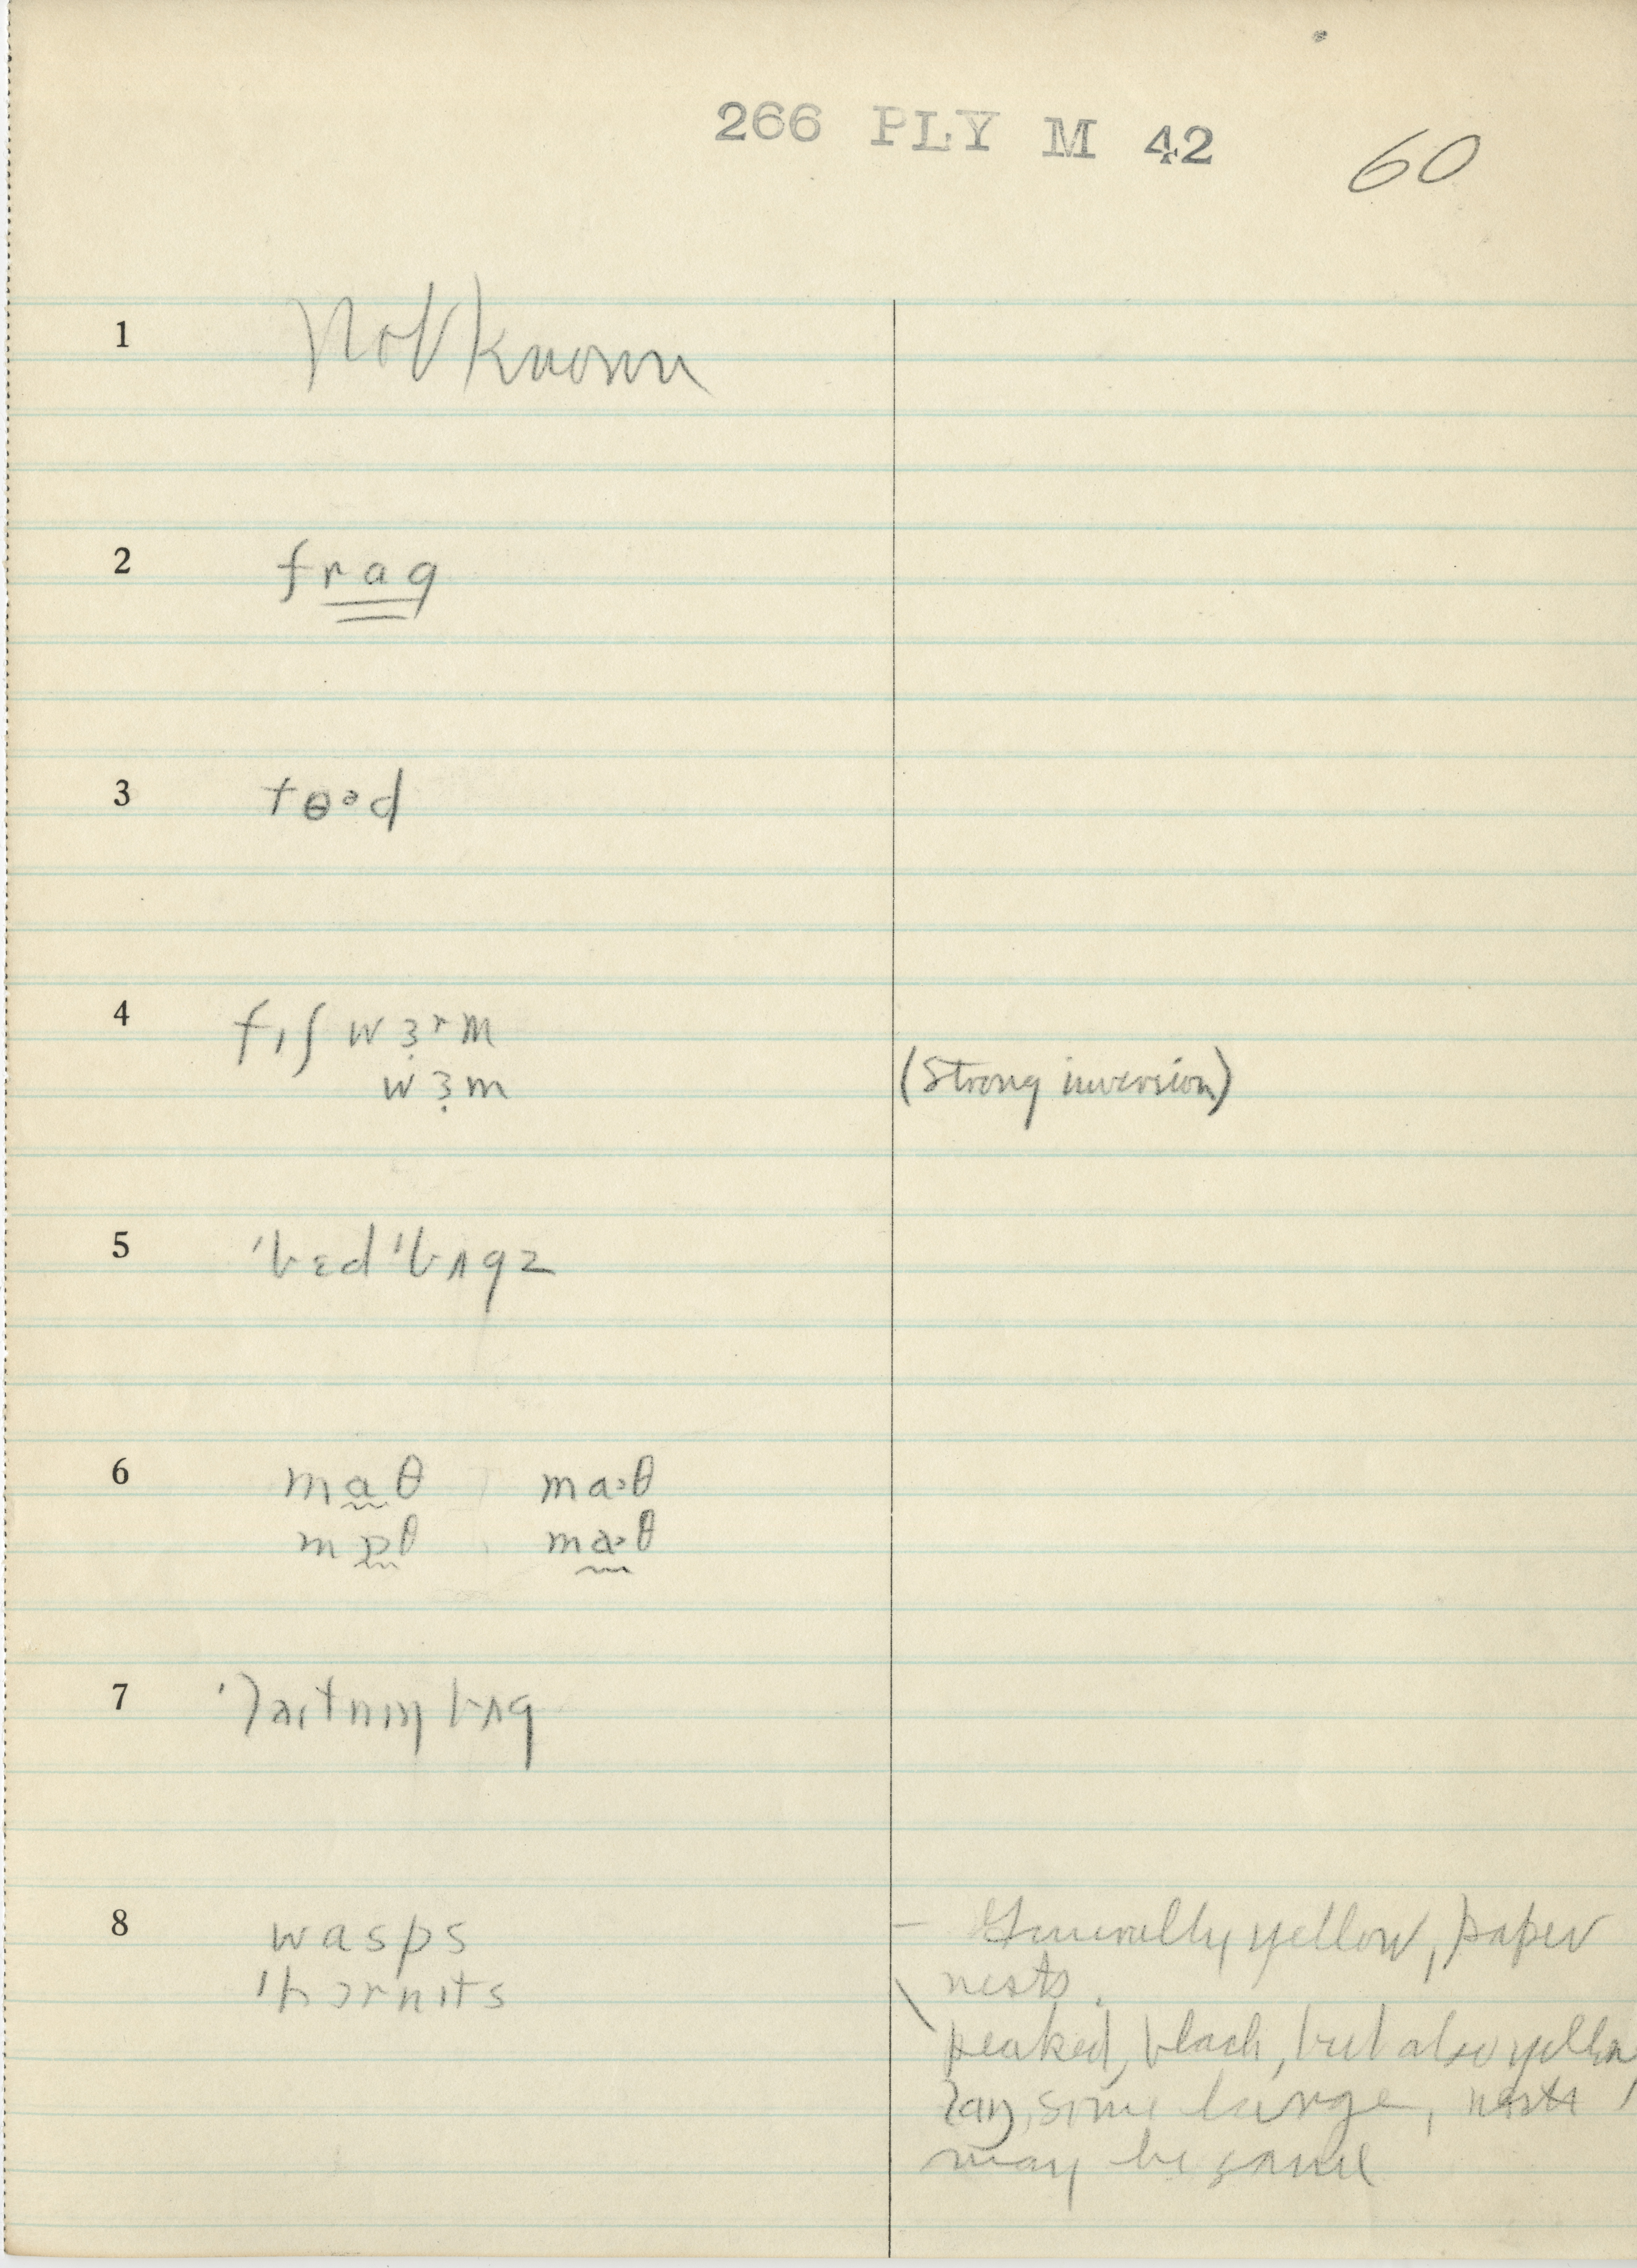 266 PLY M 42 60
1 Not known
2 frag
3 tɵᵊd
4 fɪʃ wɜ̣ʳm
wɜ̣m (Strong inversion)
5 ˈbɛdˈbʌgz
6 ma̰θ ma˃θ
mɒ̰θ ma̰˃θ
7 ˈlaɪtnɪŋ bʌg
8 wasps – Generally yellow, paper
ˈhɔrnɪts nests.
peaked, black, but also yellow
some large, nests
may be same